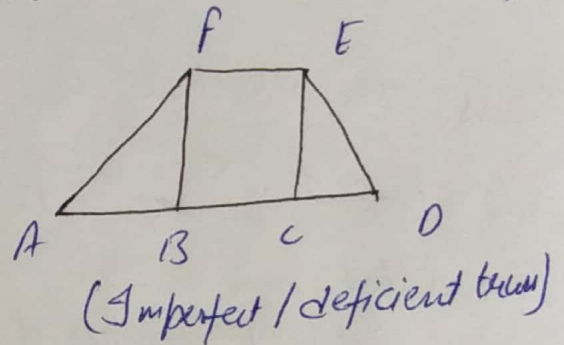 F E
A B C D
(Imperfect / deficient truss)